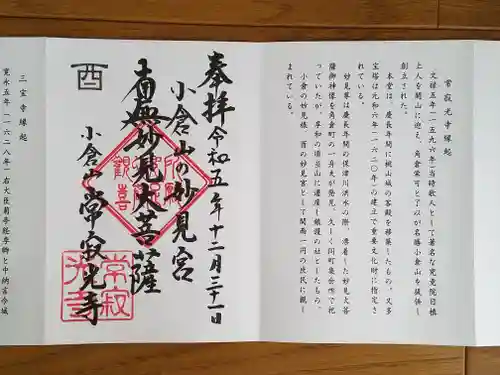 常寂光寺縁起
文禄五年(一五九六)当時歌人として著名な究竟院日禛
上人を開山に迎え、角倉栄可と了以が名勝小倉山を提供し
創立された。
本堂は、慶長年間に桃山城の客殿を移築したもの。又多
宝塔は元和六年(一六二〇年)の建立で重要文化財に指定さ
れている。
妙見尊は慶長年間の保津川洪水の際、漂着した妙見大菩
薩御神像を角倉町の一舟夫が発見、久しく同町集会所で祀
っていたが、享和の頃当山に遷座し鎮護の社としたもの。
小倉の妙見様、酉の妙見宮として関西一円の庶民に親し
まれている。
奉拝 令和五年十二月三十一日
小倉山の妙見宮
南無妙見大菩薩
小倉山 常寂光寺
酉
常寂
光寺
三宝寺縁起
寛永五年(一六二八年)右大臣菊亭経季卿と中納言今城